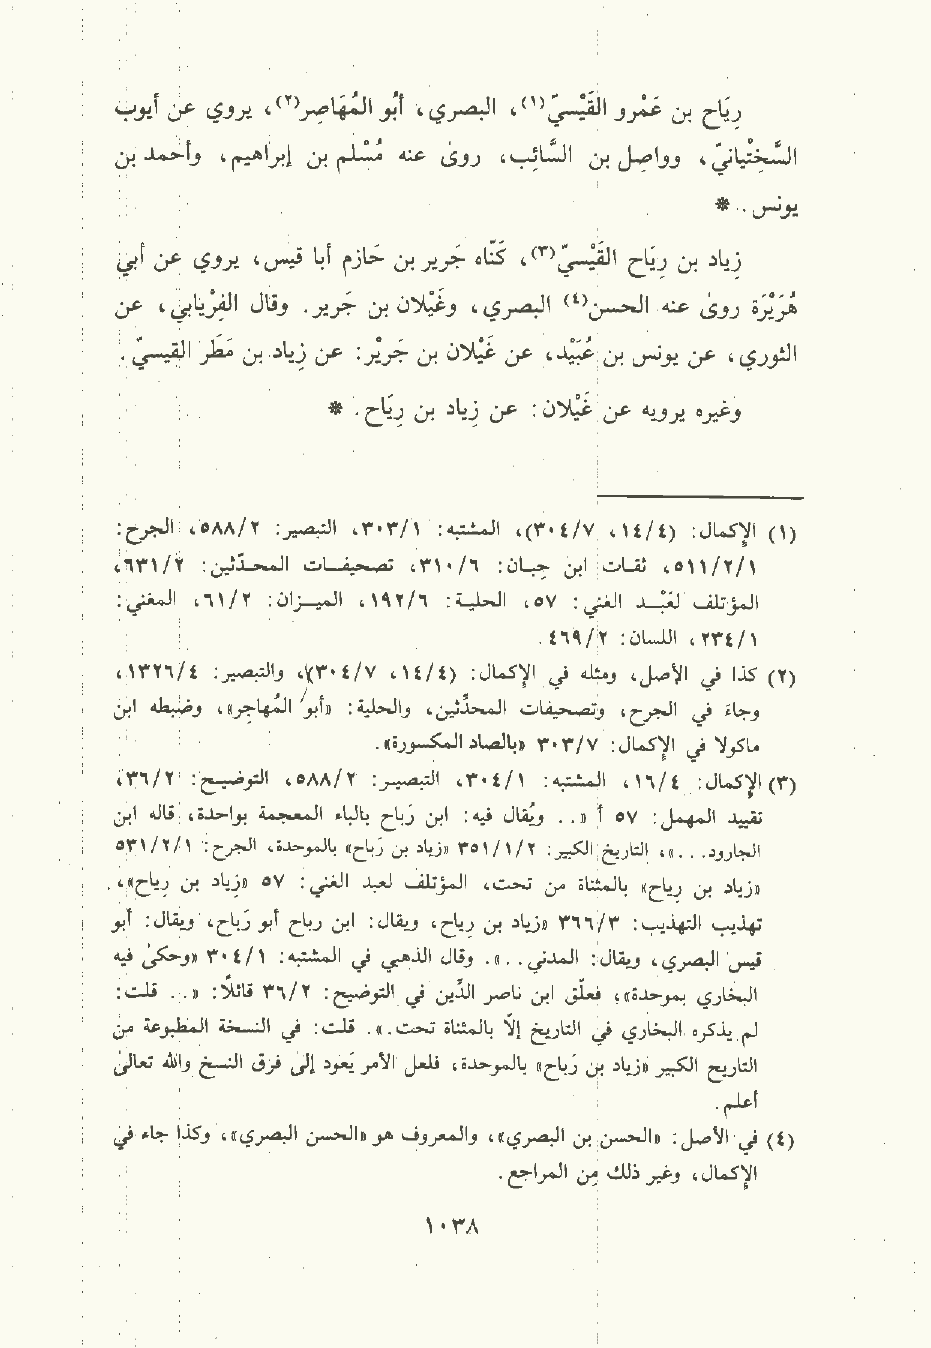 رِيَاح بن عَمْرو القَيْسيّ(١)، البصري، أبُو المُهَاصِر(٢)، يروي عن أيوب
السَّخِتْيانيّ، وواصِل بن السَّائِب، روىٰ عنه مُسْلم بن إبراهيم، وأحمد بن
يونس.. *
زِياد بن رِيَاح القَيْسيّ(٣)، كَنّاه جَرير بن حَازم أبا قيس، يروي عن أبي
هُرَيْرَة روىٰ عنه الحسن(٤) البصري، وغَيْلان بن جَرير. وقال الفِرْيابي، عن
الثوري، عن يونس بن عُبَيْد، عن غَيْلان بن جَرِيْر: عن زِياد بن مَطَر القيسيّ.
وغيره يرويه عن غَيْلان: عن زِياد بن رِيَاح. *
(١) الإكمال: (١٤/٤، ٣٠٤/٧)، المشتبه: ٣٠٣/١، التبصير: ٥٨٨/٢، الجرح:
٥١١/٢/١، ثقات ابن حِبان: ٣١٠/٦، تصحيفات المحدّثين: ٦٣١/٢،
المؤتلف لعَبْد الغني: ٥٧، الحلية: ١٩٢/٦، الميزان: ٦١/٢، المغني:
٢٣٤/١، اللسان: ٤٦٩/٢.
(٢) كذا في الأصل، ومثله في الإكمال: (١٤/٤، ٣٠٤/٧)، والتبصير: ١٣٢٦/٤،
وجاء في الجرح، وتصحيفات المحدّثين، والحلية: «أبو المُهاجِر»، وضبطه ابن
ماكولا في الإكمال: ٣٠٣/٧ «بالصاد المكسورة».
(٣) الإكمال: ١٦/٤، المشتبه: ٣٠٤/١، التبصير: ٥٨٨/٢، التوضيح: ٣٦/٢،
تقييد المهمل: ٥٧ أ «.. ويُقال فيه: ابن رَباح بالباء المعجمة بواحدة، قاله ابن
الجارود...»، التاريخ الكبير: ٣٥١/١/٢ «زياد بن رَباح» بالموحدة، الجرح: ٥٣١/٢/١
«زياد بن رِياح» بالمثناة من تحت، المؤتلف لعبد الغني: ٥٧ «زِياد بن رِياح»،.
تهذيب التهذيب: ٣٦٦/٣ «زياد بن رِياح، ويقال: ابن رباح أبو رَباح، ويقال: أبو
قيس البصري، ويقال: المدني..». وقال الذهبي في المشتبه: ٣٠٤/١ «وحكىٰ فيه
البخاري بموحدة»، فعلّق ابن ناصر الدّين في التوضيح: ٣٦/٢ قائلاً: «.. قلت:
لم يذكره البخاري في التاريخ إلاّ بالمثناة تحت.». قلت: في النسخة المطبوعة من
التاريخ الكبير «زياد بن رَباح» بالموحدة، فلعل الأمر يَعود إلىٰ فرق النسخ والله تعالىٰ
أعلم.
(٤) في الأصل: «الحسن بن البصري»، والمعروف هو «الحسن البصري»، وكذا جاء في
الإكمال، وغير ذلك مِن المراجع.
١٠٣٨